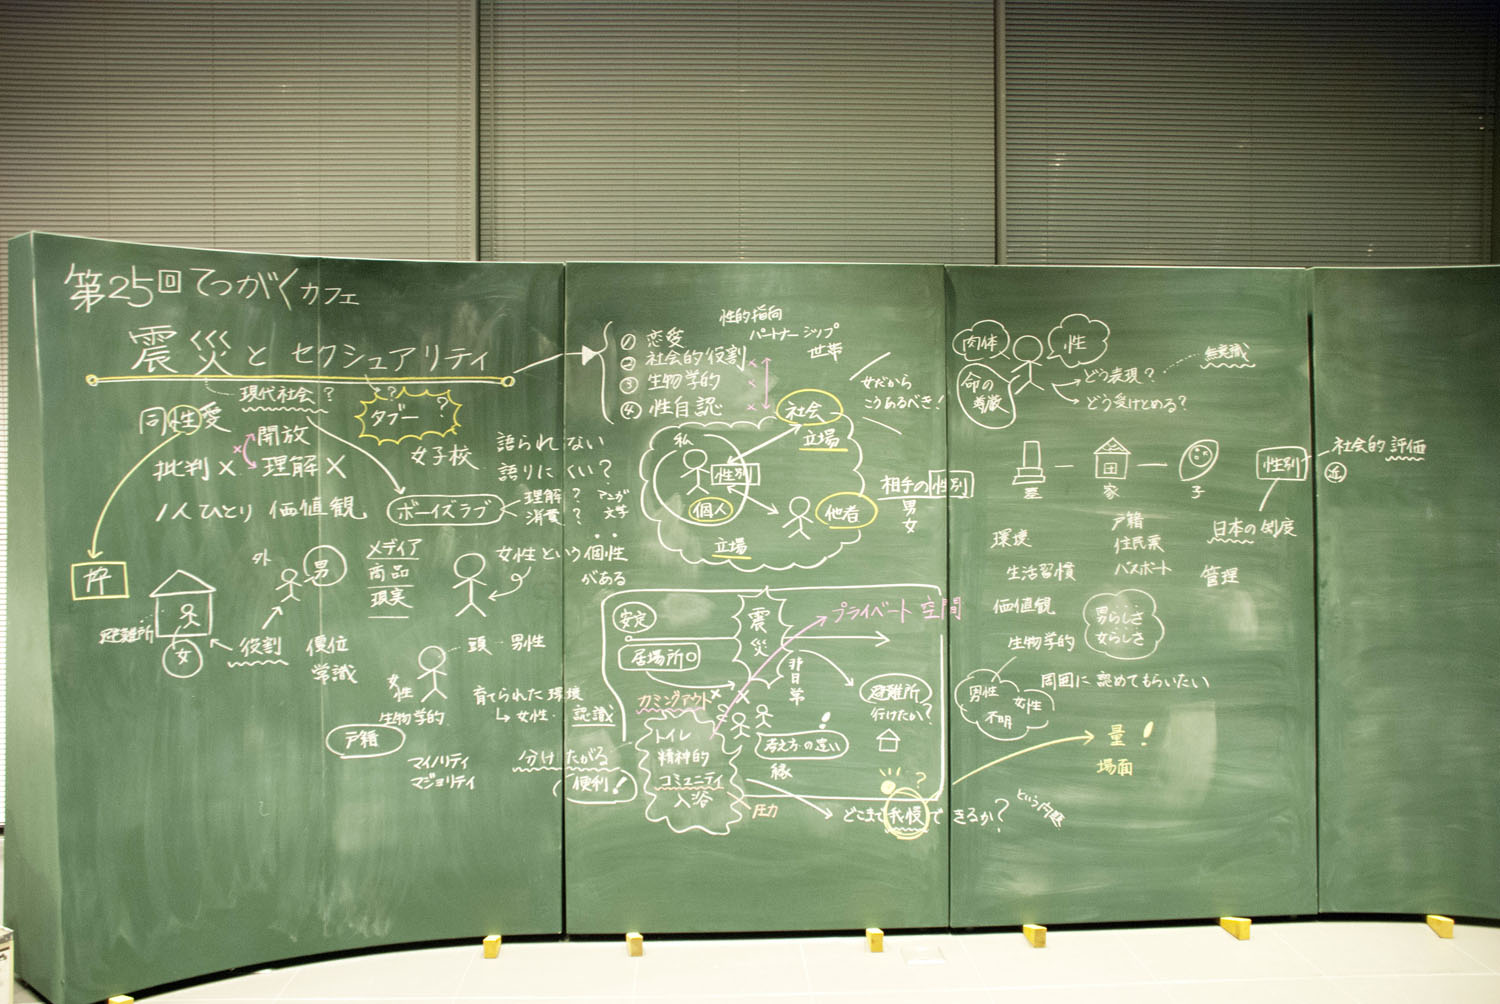 第25回てつがくカフェ
震災とセクシュアリティ
現代社会?
?タブー?
同性愛
開放
批判×
理解×
1人ひとり 価値観
女子校
語られない
語りにくい?
ボーイズラブ
理解? マンガ
消費? 文学
外
男
メディア
商品
現実
女性という個性
がある
避難所
女
役割
優位
常識
頭 男性
女性
生物学的
育てられた環境
女性 認識
戸籍
マイノリティ
マジョリティ
分けたがる
便利!
性的指向
① 恋愛 パートナーシップ
② 社会的役割 世帯
③ 生物学的
④ 性自認
女だから
こうあるべき!
社会
立場
私
性別
個人
他者
立場
相手の性別
男
女
安定
震災
プライベート空間
居場所
非日常
カミングアウト
避難所
行けたか?
トイレ
精神的
コミュニティ
入浴
考え方の違い
!
縁
圧力
?
どこまで我慢できるか?
という内題
肉体
性
命の
尊厳
無意識
どう表現?
どう受けとめる?
墓
家
子
性別
社会的評価
近
日本の制度
環境
戸籍
住民票
パスポート
生活習慣
管理
価値観
男らしさ
女らしさ
生物学的
周囲に認めてもらいたい
男性
女性
不明
量!
場面